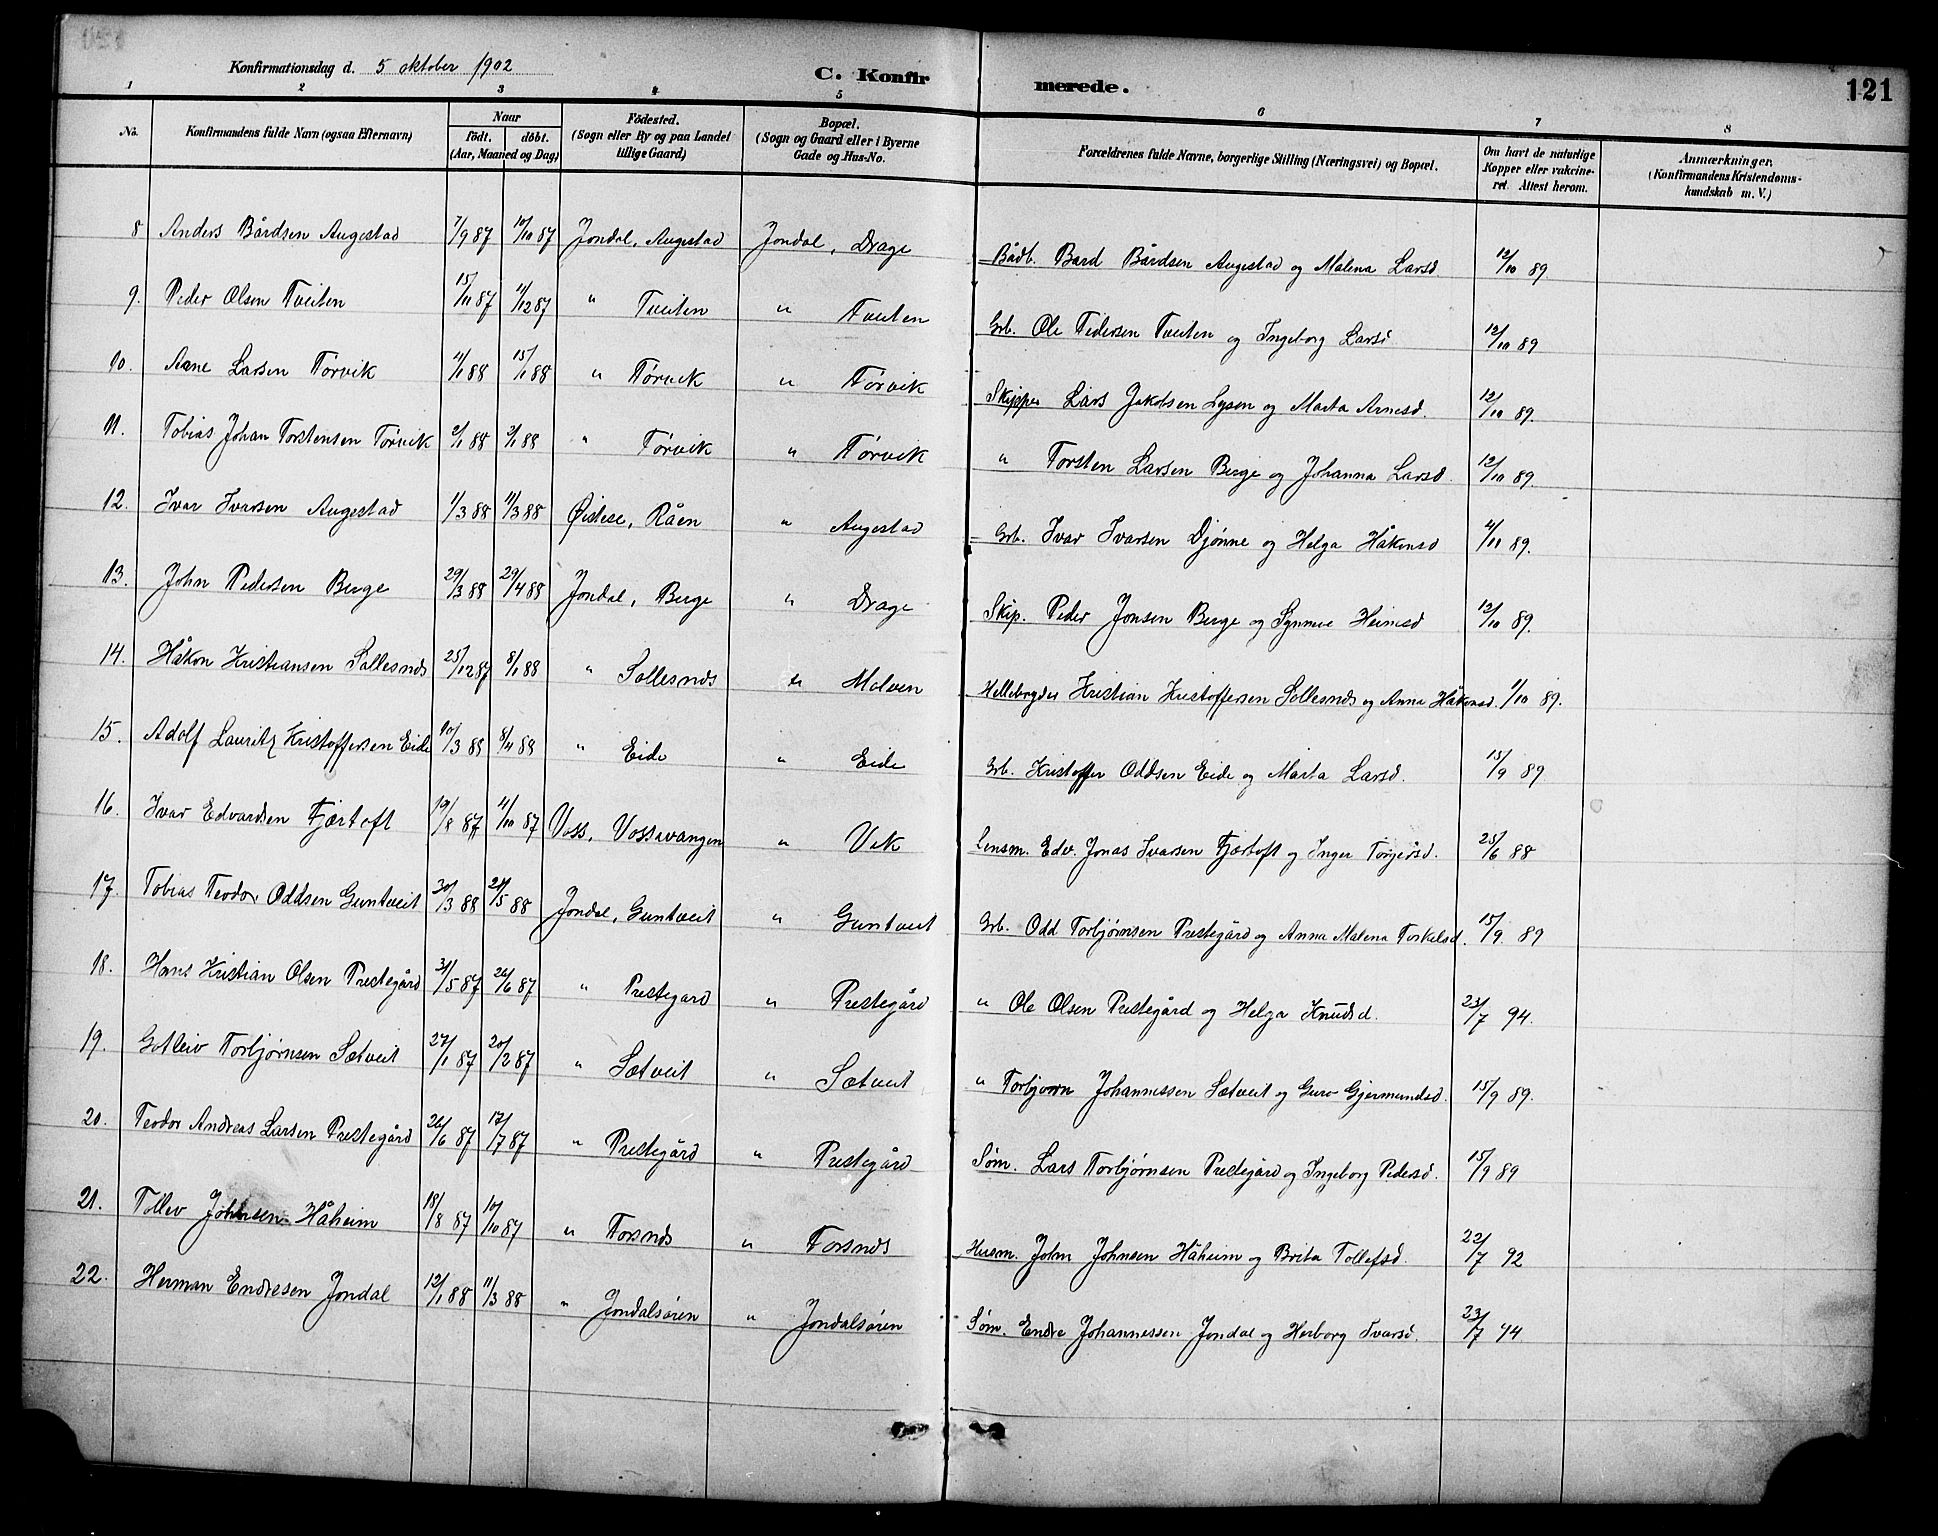 121
Konfirmationsdag d. 5 oktober 1902 C. Konfirmerede.
1 2 3 4 5 6 7 8
No. Konfirmandens fulde Navn (ogsaa Efternavn) Naar födt. döbt. (Aar, Maaned og Dag) Födested. (Sogn eller By og paa Landet tillige Gaard) Bopæl. (Sogn og Gaard eller i Byerne Gade og Hus-No. Forældrenes fulde Navne, borgerlige Stilling (Næringsvei) og Bopæl. Om havt de naturlige Kopper eller vakcineret. Attest herom. Anmærkninger. (Konfirmandens Kristendomskundskab m. V.)
8 Anders Bårdsen Augestad 7/9 87 10/10 87 Jondal, Augestad Jondal, Drage Bådb. Bard Bårdsen Augestad og Malena Larsd 12/10 89.
9. Peder Olsen Tveiten 15/11 87 11/12 87 " Tveiten " Tveiten Grb. Ole Pedersen Tveiten og Ingeborg Larsd 12/10 89
10. Arne Larsen Tørvik 11/1 88 15/1 88 " Tørvik " Tørvik Skipper Lars Jakobsen Lysen og Marta Arnesd. 12/10 89.
11. Tobias Johan Torstensen Tørvik 2/1 88 2/1 88 " Tørvik " Tørvik " Torsten Larsen Berge og Johanna Larsd. 12/10 89.
12. Ivar Ivarsen Augestad 1/3 88 11/3 88 Øistese, Råen " Augestad Grb. Ivar Ivarsen Djønne og Helga Håkonsd 4/11 89.
13. John Pedersen Berge 29/3 88 29/4 88 Jondal, Berge " Drage Skip. Peder Jonsen Berge og Synneve Heinesd 12/10 89.
14. Håkon Kristiansen Sollesnæs 25/12 87 8/1 88 " Sollesnæs " Molven Hellebryder Kristian Kristoffersen Sollesnæs og Anna Håkonsd. 1/10 89.
15. Adolf Lauritz Kristoffersen Eide 10/3 88 8/4 88 " Eide " Eide Grb. Kristoffer Oddsen Eide og Marta Larsd. 15/9 89
16. Ivar Edvardsen Fjærtoft 19/8 87 11/10 87 Voss, Vossevangen " Vik Lensm. Edv. Jonas Ivarsen Fjærtoft og Inger Torgersd. 25/6 88
17. Tobias Teodor Oddsen Guntveit 30/3 88 21/5 88 Jondal, Guntveit " Guntveit Grb. Odd Torbjørnsen Prestegård og Anna Malena Torkelsd. 15/9. 89
18. Hans Kristian Olsen Prestegård 31/5 87 26/6 87 " Prestegard " Prestegård " Ole Olsen Prestegård og Helga Knudsd. 23/7 94.
19. Gotleiv Torbjørnsen Sætveit 27/1 87 20/2 87 " Sætveit " Sætveit " Torbjørn Johannessen Sætveit og Guro Gjermundsd. 15/9 89.
20. Teodor Andreas Larsen Prestegård 26/6 87 17/7 87 " Prestegård " Prestegård Søm. Lars Torbjørnsen Prestegård og Ingeborg Pedersd. 15/9 89
21. Tollev Johnsen Håheim 18/8 87 10/10 87 " Torsnæs " Torsnæs Husm. John Johnsen Håheim og Brita Tollefsd. 22/7 92
22. Herman Endresen Jondal 12/1 88 11/3 88 " Jondalsøren " Jondalsøren Søm. Endre Johannessen Jondal og Herborg Ivarsd. 23/7 94